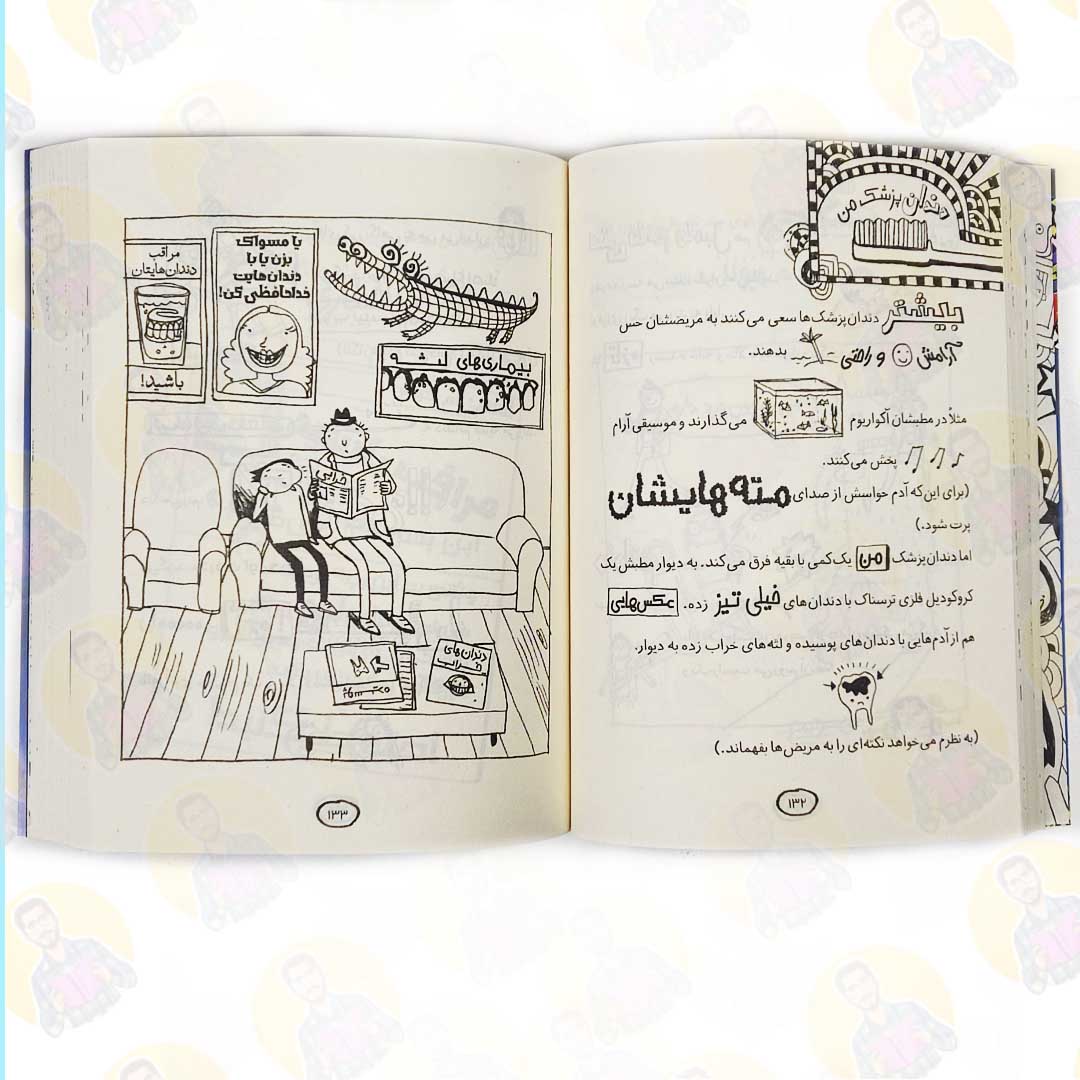 دندان پزشک من
بیشتر دندان‌پزشک‌ها سعی می‌کنند به مریضشان حس
آرامش و راحتی بدهند.
مثلاً در مطبشان آکواریوم می‌گذارند و موسیقی آرام
پخش می‌کنند.
(برای این‌که آدم حواسش از صدای مته‌هایشان
پرت شود.)
اما دندان‌پزشک من یک‌کمی با بقیه فرق می‌کند. به دیوار مطبش یک
کروکودیل فلزی ترسناک با دندان‌های خیلی تیز زده. عکس‌هایی
هم از آدم‌هایی با دندان‌های پوسیده و لثه‌های خراب زده به دیوار.
(به نظرم می‌خواهد نکته‌ای را به مریض‌ها بفهماند.)
۱۳۲
یا مسواک
بزن یا با
دندان‌هایت
خداحافظی کن!
مراقب
دندان‌هایتان
باشید!
بیماری‌های لثه
خرابی
دندان های
خراب
۱۳۳